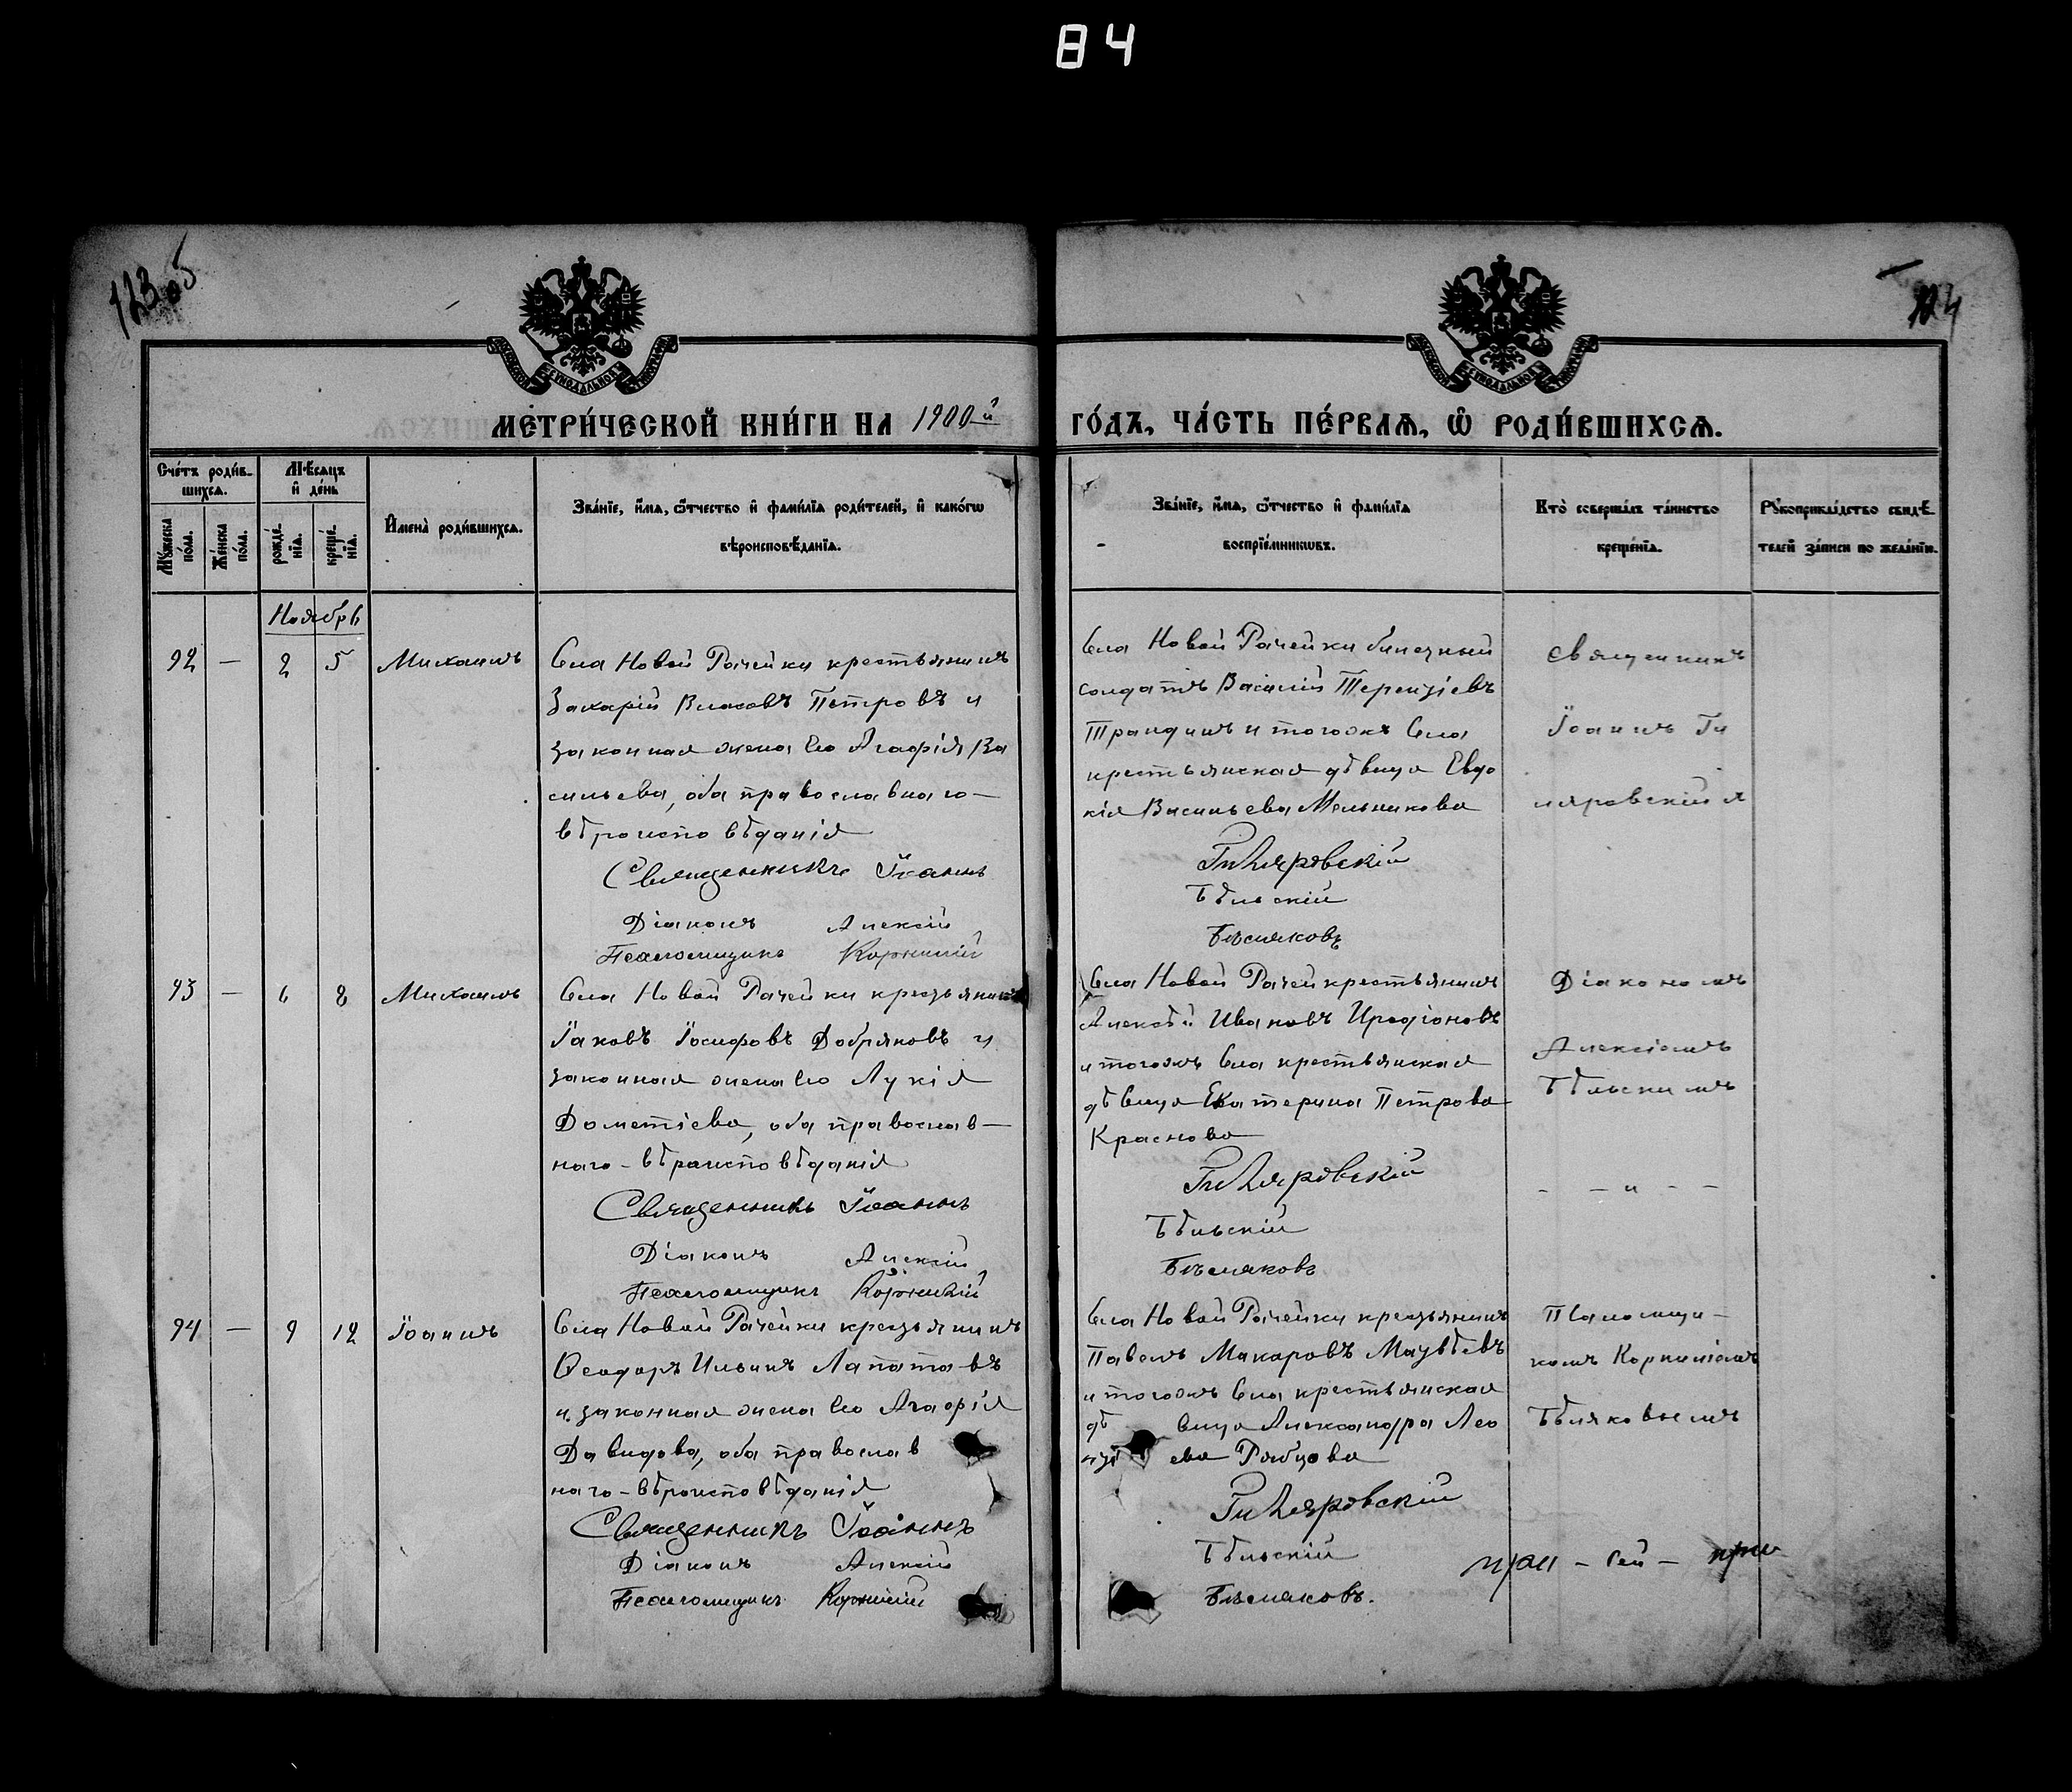 84
123
124
МЕТРИ́ЧЕСКОЙ КНИ́ГИ НА 1900й ГО́ДЪ, ЧА́СТЬ ПЕ́РВАѦ, Ѡ РОДИ́ВШИХСѦ.
Сче́тъ роди́в-
шихсѧ.
Мѣ́сѧцъ
и де́нь
Мꙋжеска по́ла.
Же́нска по́ла.
рожде́-
нїѧ.
креще́-
нїѧ.
Имена̀ роди́вшихсѧ.
Зва́нїе, и́мѧ, ѻ́тчество и фами́лїѧ роди́телей, и како́гѡ
вѣроисповѣ́данїѧ.
Зва́нїе, и́мѧ, ѻ́тчество и фами́лїѧ
воспрїе́мникѡвъ.
Кто̀ соверша́лъ та́инство
креще́нїѧ.
Рꙋкоприкла́дство свидѣ́-
телей за́писи по жела́нїю.
Ноябрь
92 — 2 5 Михаилъ
Села Новой Рачейки крестьянинъ
Захарій Власовъ Петровъ и
законная жена его Агафія Ва
сильева, оба православнаго —
вѣроисповѣданія
Священникъ Іоаннъ
Діаконъ Алексій
Псаломщикъ Корнилій
Села Новой Рачейки
солдатъ Василій Терентіевъ
и тогоже села
крестьянская дѣвица Евдо
кія Васильева Мельникова
Гиляровскій
Бѣльскій
Бѣляковъ
Священникъ
Іоаннъ Ги
ляровскій
93 — 6 8 Михаилъ
Села Новой Рачейки крестьянинъ
Іаковъ Іосифовъ Добряковъ и
законная жена его Лукія
Дометіева, оба православ —
наго — вѣроисповѣданія
Священникъ Іоаннъ
Діаконъ Алексій
Псаломщикъ Корнилій
Села Новой Рачей крестьянинъ
Алексѣй Ивановъ Иродіоновъ
и тогожъ села крестьянская
дѣвица Екатерина Петрова
Краснова
Гиляровскій
Бѣльскій
Бѣляковъ
Діакономъ
Алексіемъ
Бѣльскимъ
- — „ — —
94 — 9 12 Іоаннъ
Села Новой Рачейки крестьянинъ
Ѳеодоръ Ильинъ Лапатовъ
и законная жена его Агафія
Давидова, оба православ
наго — вѣроисповѣданія
Священникъ Іоаннъ
Діаконъ Алексій
Псаломщикъ Корнилій
Села Новой Рачейки крестьянинъ
Павелъ Макаровъ Матвѣевъ
и тогожъ села крестьянская
дѣ вица Александра Лео
нті ева Рябцова
Гиляровскій
Бѣльскій
Бѣляковъ.
Псаломщи —
комъ Корниліемъ
Бѣляковымъ